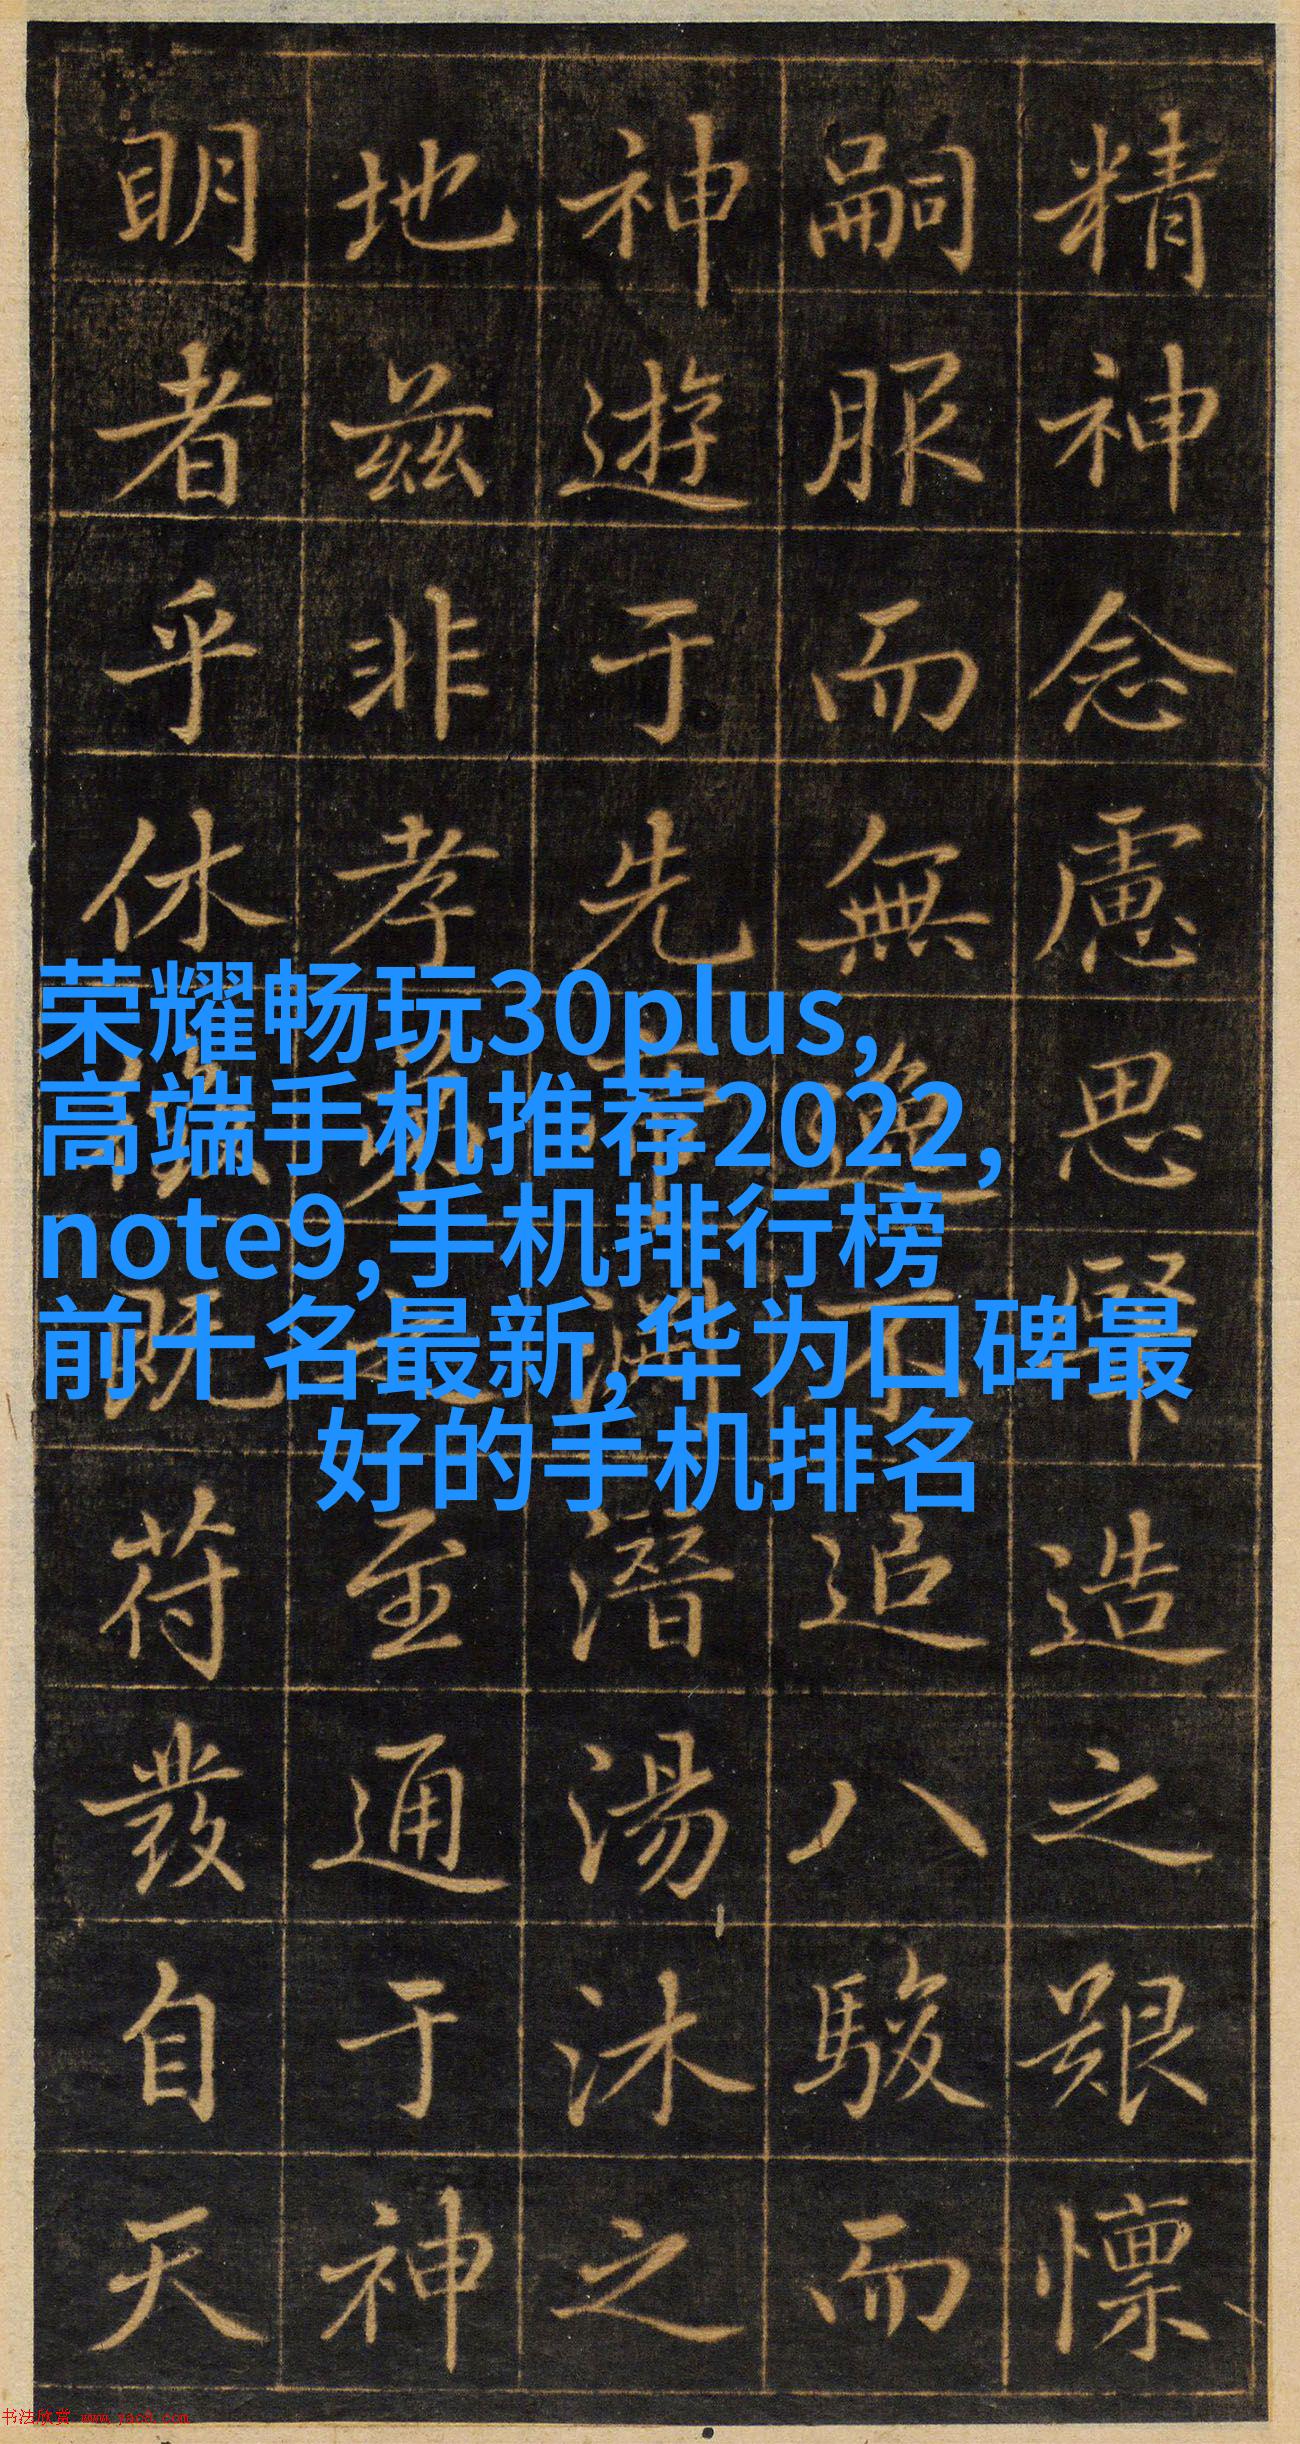 精神念慮思造之艱懍
嗣服而無逸不追八駿而
神遊于先潛湯沐之
地兹非孝弟之至通于神
明者乎休既苻發自天
荣耀畅玩30plus,
高端手机推荐2022,
note9,手机排行榜
前十名最新,华为口碑最
好的手机排名
书法欣赏 www.yac8.com